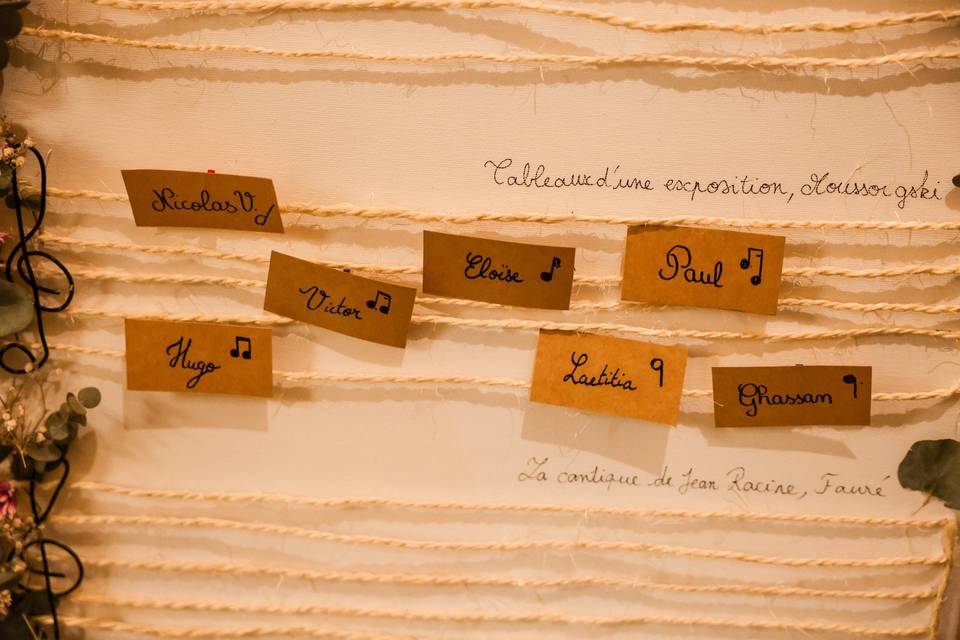 Tableaux d'une exposition, Moussorgski
Nicolas V.
Eloïse
Paul
Victor
Hugo
Laetitia
Ghassan
La cantique de Jean Racine, Fauré